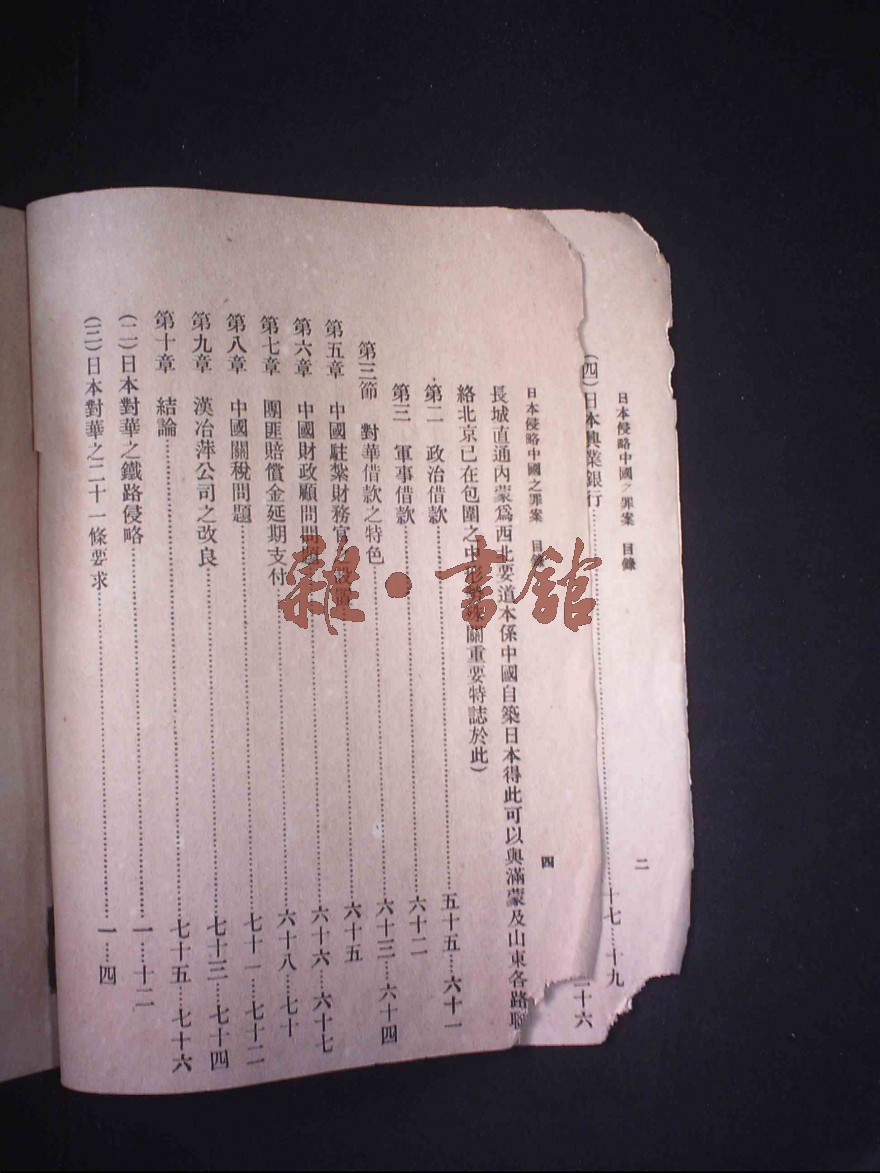 日本侵略中國之罪案　目錄
二
(四)日本興業銀行……十七……十九
十六
日本侵略中國之罪案　目錄
四
長城直通內蒙爲西北要道本係中國自築日本得此可以與滿蒙及山東各路聯
絡北京已在包圍之中形 關重要特誌於此)
第二　政治借款……五十五……六十一
第三　軍事借款……六十二
第三節　對華借款之特色……六十三……六十四
第五章　中國駐紮財務官之設置……六十五
第六章　中國財政顧問問題……六十六……六十七
第七章　團匪賠償金延期支付……六十八……七十
第八章　中國關稅問題……七十一……七十二
第九章　漢冶萍公司之改良……七十三……七十四
第十章　結論……七十五……七十六
(二)日本對華之鐵路侵略……一……十二
(三)日本對華之二十一條要求……一……四
雜·書舘